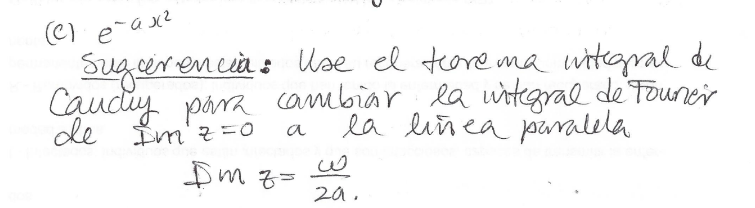 (c) e^{-ax²}
Sugerencia: Use el teorema integral de
Cauchy para cambiar la integral de Fourier
de Im z=0 a la linea paralela
Im z= ω/2a.